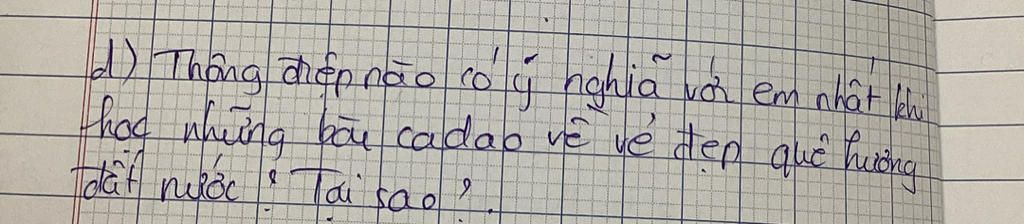 d) Thông điệp nào có ý nghĩa với em nhất khi
học những bài ca dao về vẻ đẹp quê hương
đất nước? Tại sao?.